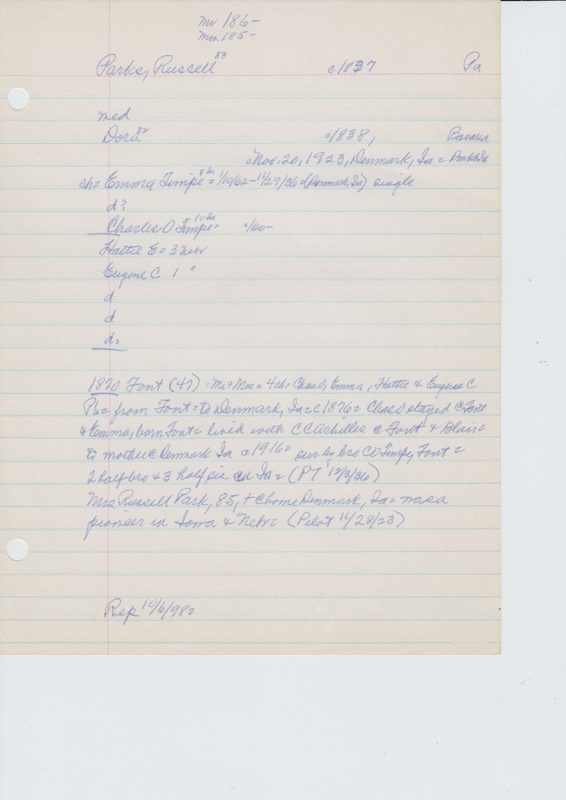 Mr 186-
Mrs. 185-
Parks, Russell 33 c1837 Pa
med
Dora 32 c1838, Bavaria
Nov. 20, 1923, Denmark, Ia =
ch = Emma Timpe 8 Ia = 1/10/62 - 11/29/36 = (Denmark, Ia) single
d?
Charles O Timpe 10 Ia c/60-
Hattie E = 3 Nebr
Eugene C 1 "
d
d
d=
1870 Font (47) = Mr & Mrs = 4 ch = Chas O, Emma, Hattie & Eugene C
Ph = from Font = to Denmark, Ia = c1876 = Chas O stayed @ Font
& Emma, born Font = lived with C C Achilles @ Font & Blair =
to mother @ Denmark Ia c1916 = sur by bro C O Timpe, Font =
2 half bro & 3 half sis @ Ia = (PT 12/3/36)
Mrs Russell Park, 85, + @ home Denmark, Ia = was a
pioneer in Iowa & Nebr = (Pilot 11/28/23)
Rep 10/6/98=